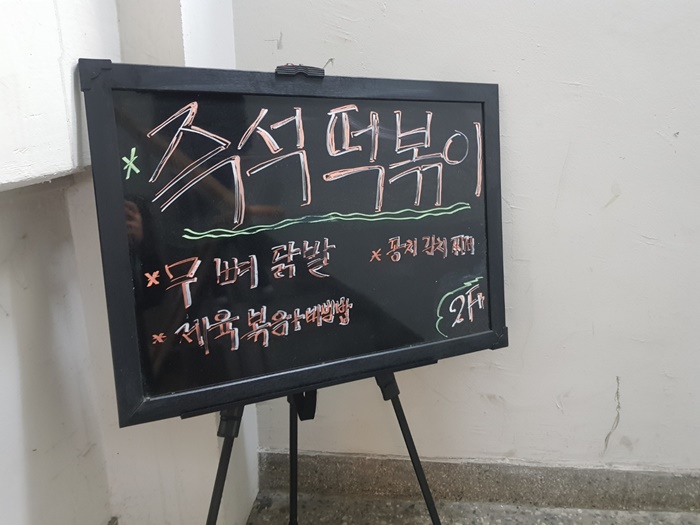 * 즉석 떡볶이
* 무뼈 닭발
* 참치 김치
* 제육볶음+비빔밥
2F